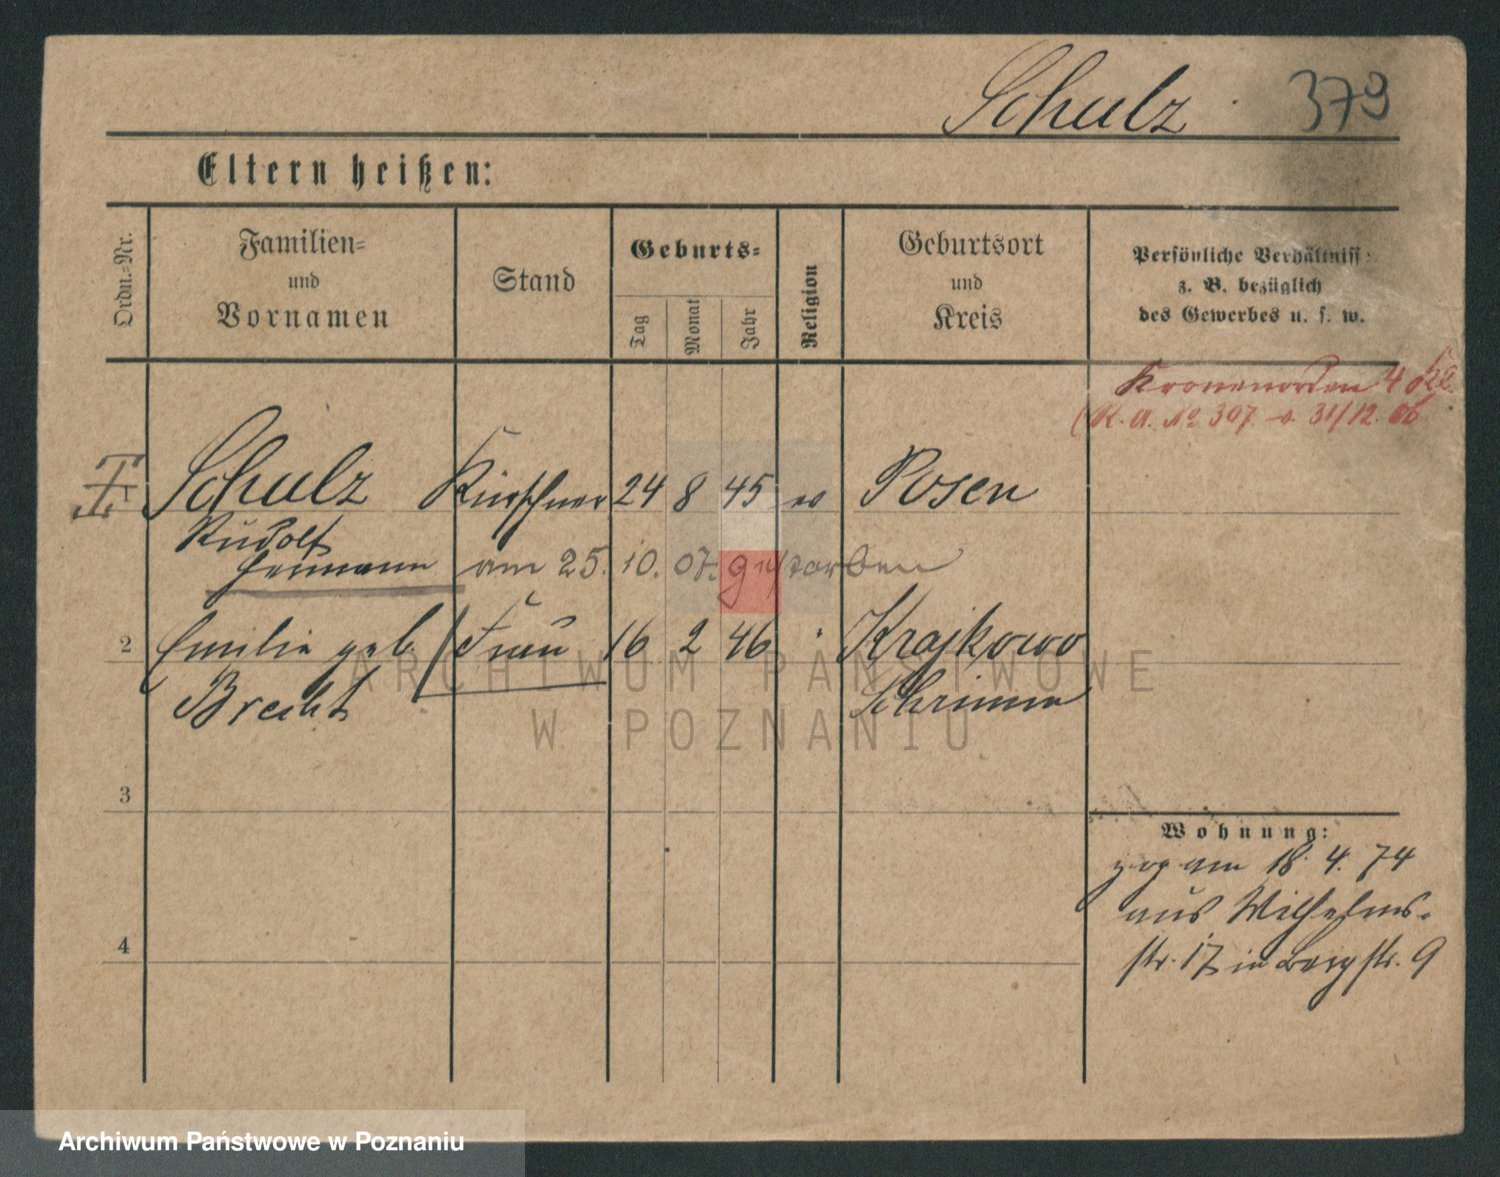 Schulz 379
Eltern heißen:
Ordn.=Nr.
Familien=
und
Vornamen
Stand
Geburts=
Tag
Monat
Jahr
Religion
Geburtsort
und
Kreis
Persönliche Verhältniss
z. B. bezüglich
des Gewerbes u. s. w.
Kronenorden 4 Kl.
(K. A. No 307 v 31/12. 06
1 Schulz Kürschner 24 8 45 ev Posen
Rudolf
Hermann am 25. 10. 07. gestorben
2 Emilie geb. Frau 16 2 46 " Krajkowo
Brecht Schrimm
3
4
Wohnung:
zog am 18. 4. 74
aus Wilhelms-
str. 17 in Bergstr. 9
ARCHIWUM PAŃSTWOWE
W POZNANIU
Archiwum Państwowe w Poznaniu